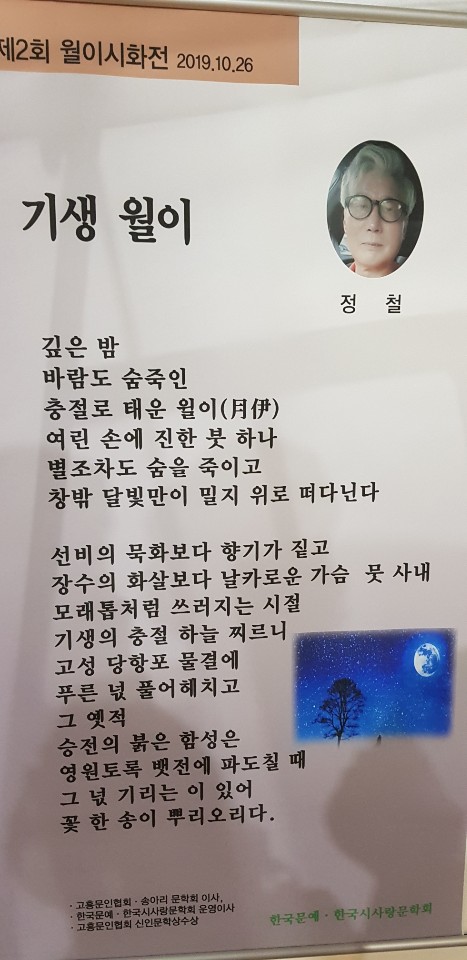 제2회 월이시화전 2019.10.26
기생 월이
정 철
깊은 밤
바람도 숨죽인
충절로 태운 월이(月伊)
여린 손에 진한 붓 하나
별조차도 숨을 죽이고
창밖 달빛만이 밀지 위로 떠다닌다
선비의 묵화보다 향기가 짙고
장수의 화살보다 날카로운 가슴 뭇 사내
모래톱처럼 쓰러지는 시절
기생의 충절 하늘 찌르니
고성 당항포 물결에
푸른 넋 풀어헤치고
그 옛적
승전의 붉은 함성은
영원토록 뱃전에 파도칠 때
그 넋 기리는 이 있어
꽃 한 송이 뿌리오리다.
· 고흥문인협회 · 송아리 문학회 이사,
· 한국문예 · 한국시사랑문학회 운영이사
· 고흥문인협회 신인문학상수상
한국문예 · 한국시사랑문학회